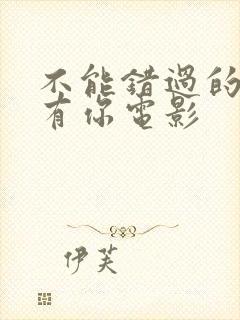 不能錯過的
有你電影
伊芙